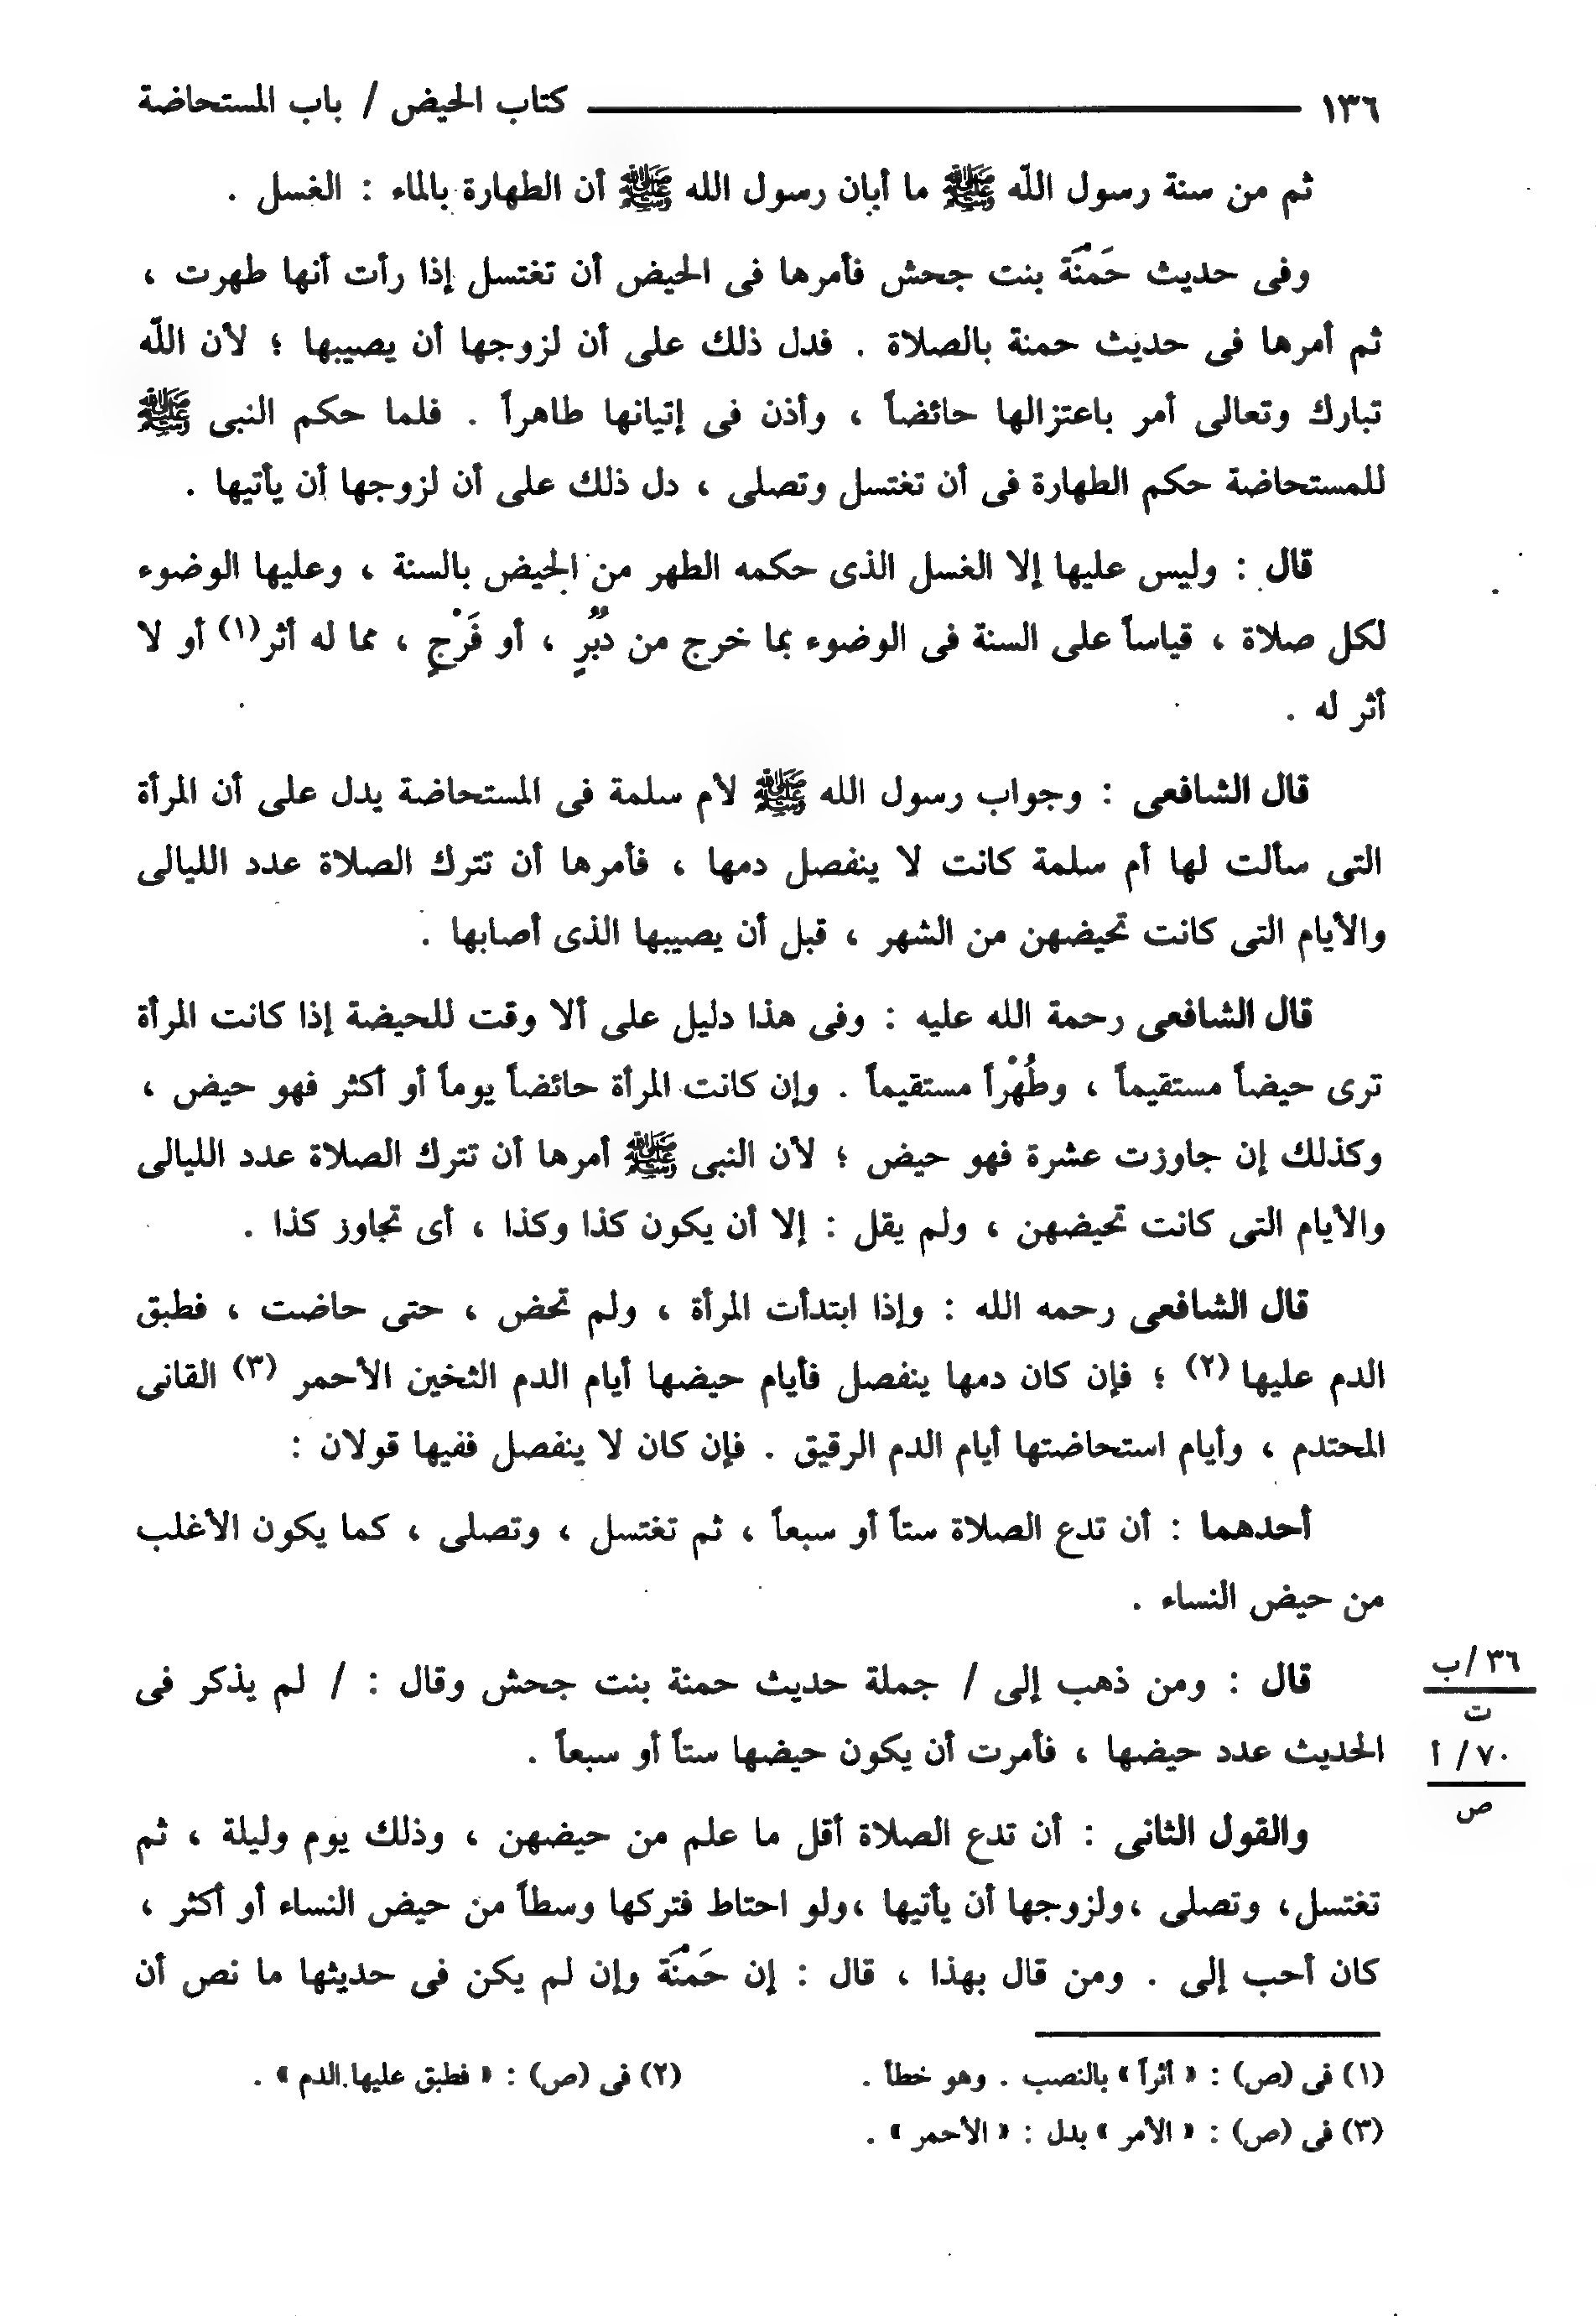 ١٣٦ كتاب الحيض / باب المستحاضة
ثم من سنة رسول اللّه ﷺ ما أبان رسول الله ﷺ أن الطهارة بالماء : الغسل .
وفى حديث حَمْنَة بنت جحش فأمرها فى الحيض أن تغتسل إذا رأت أنها طهرت ،
ثم أمرها فى حديث حمنة بالصلاة . فدل ذلك على أن لزوجها أن يصيبها ؛ لأن اللّه
تبارك وتعالى أمر باعتزالها حائضاً ، وأذن فى إتيانها طاهراً . فلما حكم النبى ﷺ
للمستحاضة حكم الطهارة فى أن تغتسل وتصلى ، دل ذلك على أن لزوجها أن يأتيها .
قال : وليس عليها إلا الغسل الذى حكمه الطهر من الحيض بالسنة ، وعليها الوضوء
لكل صلاة ، قياساً على السنة فى الوضوء بما خرج من دُبُرٍ ، أو فَرْجٍ ، مما له أثر(١) أو لا
أثر له .
قال الشافعى : وجواب رسول الله ﷺ لأم سلمة فى المستحاضة يدل على أن المرأة
التى سألت لها أم سلمة كانت لا ينفصل دمها ، فأمرها أن تترك الصلاة عدد الليالى
والأيام التى كانت تحيضهن من الشهر ، قبل أن يصيبها الذى أصابها .
قال الشافعى رحمة الله عليه : وفى هذا دليل على ألا وقت للحيضة إذا كانت المرأة
ترى حيضاً مستقيماً ، وطُهْراً مستقيماً . وإن كانت المرأة حائضاً يوماً أو أكثر فهو حيض ،
وكذلك إن جاوزت عشرة فهو حيض ؛ لأن النبى ﷺ أمرها أن تترك الصلاة عدد الليالى
والأيام التى كانت تحيضهن ، ولم يقل : إلا أن يكون كذا وكذا ، أى تجاوز كذا .
قال الشافعى رحمه الله : وإذا ابتدأت المرأة ، ولم تحض ، حتى حاضت ، فطبق
الدم عليها (٢) ؛ فإن كان دمها ينفصل فأيام حيضها أيام الدم الثخين الأحمر (٣) القانى
المحتدم ، وأيام استحاضتها أيام الدم الرقيق . فإن كان لا ينفصل ففيها قولان :
أحدهما : أن تدع الصلاة ستاً أو سبعاً ، ثم تغتسل ، وتصلى ، كما يكون الأغلب
من حيض النساء .
قال : ومن ذهب إلى / جملة حديث حمنة بنت جحش وقال : / لم يذكر فى
الحديث عدد حيضها ، فأمرت أن يكون حيضها ستاً أو سبعاً .
٣٦/ب
ت
٧٠/ أ
ص
والقول الثانى : أن تدع الصلاة أقل ما علم من حيضهن ، وذلك يوم وليلة ، ثم
تغتسل، وتصلى ،ولزوجها أن يأتيها ،ولو احتاط فتركها وسطاً من حيض النساء أو أكثر ،
كان أحب إلى . ومن قال بهذا ، قال : إن حَمْنَة وإن لم يكن فى حديثها ما نص أن
(١) فى (ص) : « أثراً » بالنصب . وهو خطأ . (٢) فى (ص) : « فطبق عليها الدم » .
(٣) فى (ص) : « الأمر » بدل : « الأحمر » .